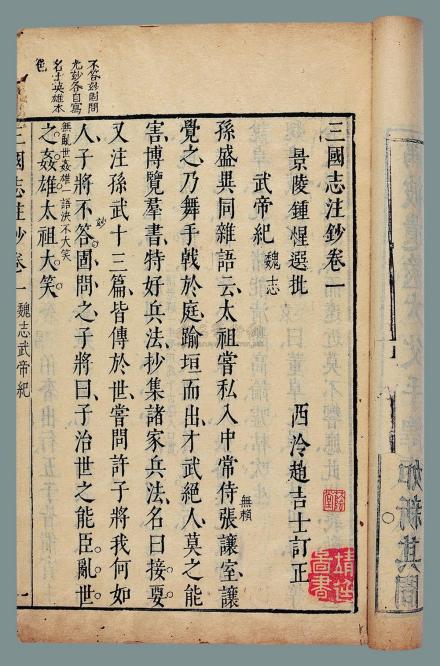 三國志注鈔卷一
景陵鍾惺選批
西泠趙吉士訂正
武帝紀 魏志
孫盛異同雜語云太祖嘗私入中常侍張讓室讓
無賴
覺之乃舞手戟於庭踰垣而出才武絕人莫之能
害博覽羣書特好兵法抄集諸家兵法名曰接要
又注孫武十三篇皆傳於世嘗問許子將我何如
人子將不答固問之子將曰子治世之能臣亂世
妙
之姦雄太祖大笑
無亂世姦雄一語決不大笑
不答妙固問
尤妙各自寫
英雄本
色
三國志注鈔卷一 魏志武帝紀 一
如新其間